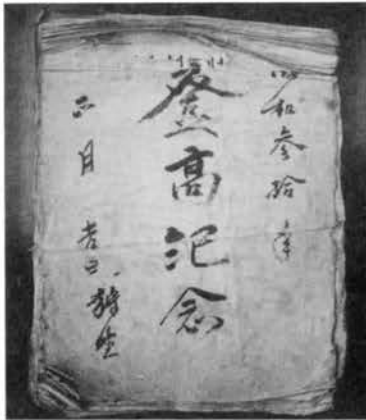 昭和参拾年
登高記念
正月 吉日